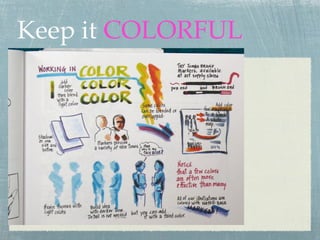 Keep it COLORFUL
WORKING IN
COLOR
COLOR
COLOR
Add
darker
color
then blend
with a
light color
Some colors
can be blended or
overlapped
Try Tombo Brush
markers, available
at art supply stores
pen end and BRUSH END
Add color
Shadow
on one
side and
bottom
Markers provide
a variety of skin tones
Begin figures with
light colors
Build mid
with darker tone
Detail is not needed
but you can add
it with a third color
Notice
that a few colors
are often more
effective than many
All of our illustrations are
colored with water-base
markers